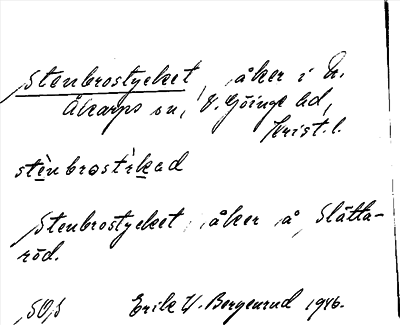 Stenbrostycket, åker i N.
Åkarps sn, V. Göinge hd,
Krist. l.
stènbrostìkad
Stenbrostycket, åker å Slätta-
röd.
SOS Erik W. Bergenrud 1946.